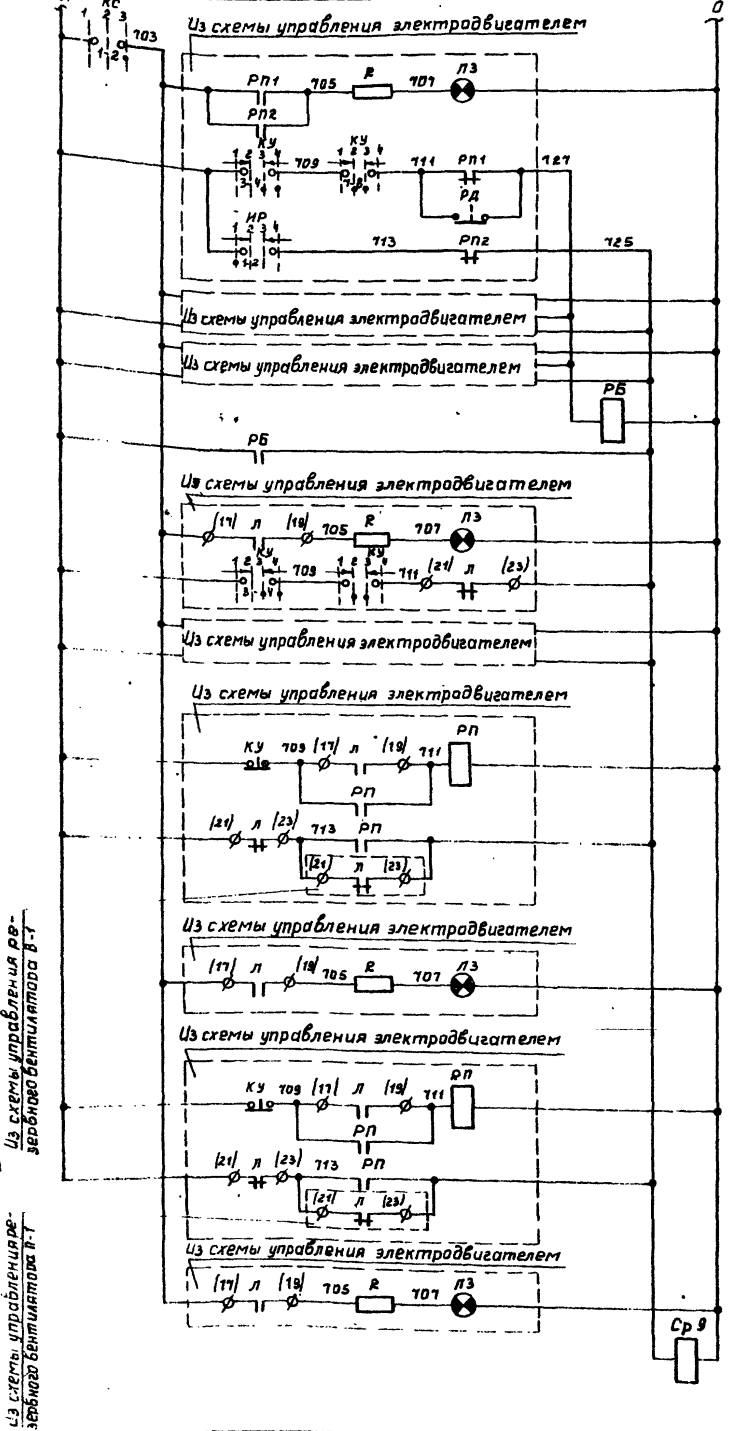 КС
0
1 2 3
1 2
703
Из схемы управления электродвигателем
РП1 705 R 707 ЛЗ
РП2
КУ КУ
1 2 3 4 709 1 2 3 4 711 РП1 727
3 4 7 8
РД
ИР
1 2 3 4 713 РП2 725
1 2
Из схемы управления электродвигателем
Из схемы управления электродвигателем
РБ
РБ
Из схемы управления электродвигателем
(17) Л (19) 705 R 707 ЛЗ
КУ КУ
1 2 3 4 709 1 2 3 4 711 (21) Л (23)
3 4
Из схемы управления электродвигателем
Из схемы управления электродвигателем
КУ 709 (17) Л (19) 711 РП
РП
(21) Л (23) 713 РП
(21) Л (23)
Из схемы управления электродвигателем
(17) Л (19) 705 R 707 ЛЗ
Из схемы управления электродвигателем
КУ 709 (17) Л (19) 711 РП
РП
(21) Л (23) 713 РП
(21) Л (23)
Из схемы управления электродвигателем
(17) Л (19) 705 R 707 ЛЗ
Ср 9
Из схемы управления ре-
зервного вентилятора В-1
Из схемы управления ре-
зервного вентилятора В-1